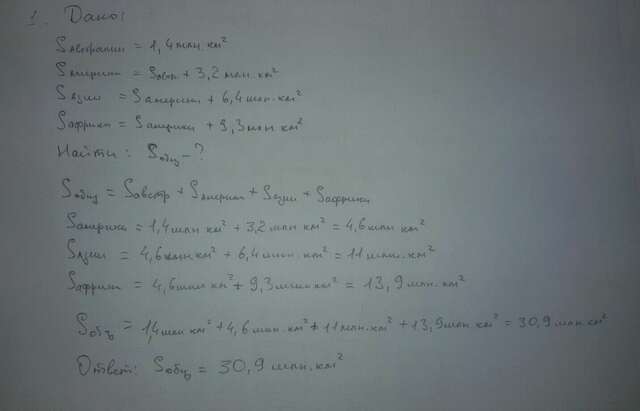 1. Дано:
Sавстралии = 1,4 млн. км²
Sамерики = Sавст + 3,2 млн. км²
Sазии = Sамерики + 6,4 млн. км²
Sафрики = Sамерики + 9,3 млн км²
Найти: Sобщ - ?
Sобщ = Sавстр + Sамерики + Sазии + Sафрики
Sамерики = 1,4 млн км² + 3,2 млн км² = 4,6 млн км²
Sазии = 4,6 млн км² + 6,4 млн. км² = 11 млн. км²
Sафрики = 4,6 млн км² + 9,3 млн км² = 13,9 млн. км²
Sобщ = 1,4 млн км² + 4,6 млн. км² + 11 млн. км² + 13,9 млн. км² = 30,9 млн. км²
Ответ: Sобщ = 30,9 млн. км²